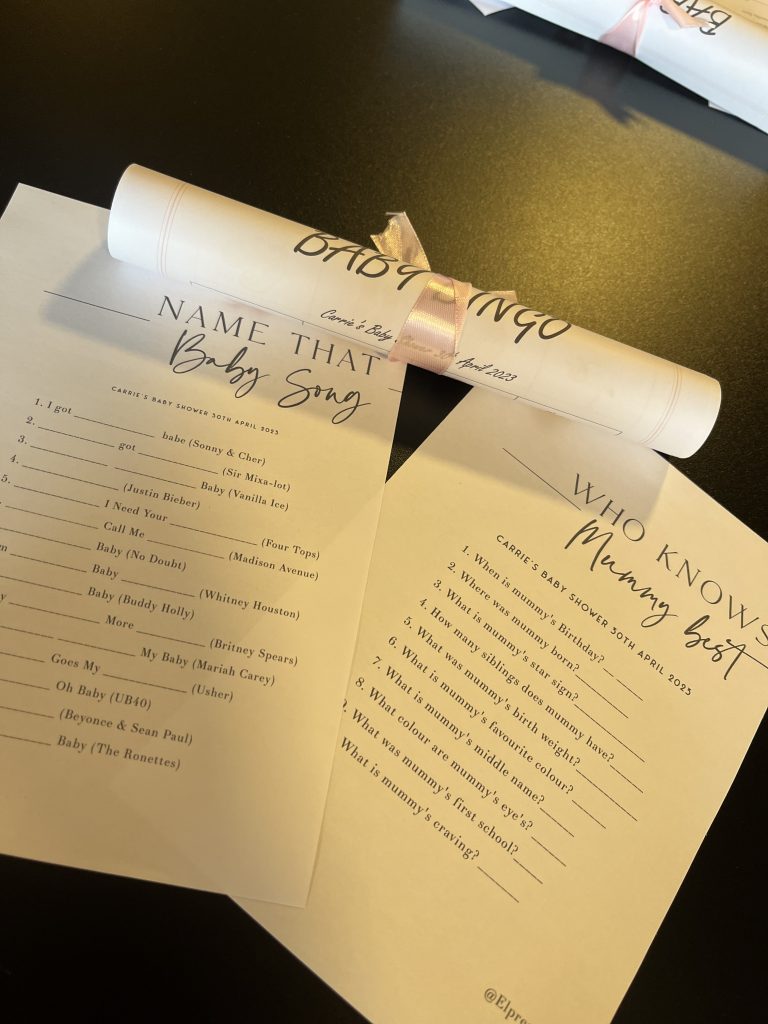 BA
BABY INGO
Carrie's Baby April 2023
NAME THAT
Baby Song
CARRIE'S BABY SHOWER 30TH APRIL 2023
1. I got ____________ babe (Sonny & Cher)
2. ____________ got ____________ (Sir Mixa-lot)
3. ____________ ____________ Baby (Vanilla Ice)
4. ____________ (Justin Bieber)
5. ____________ I Need Your ____________ (Four Tops)
____________ Call Me ____________ (Madison Avenue)
____________ Baby (No Doubt)
____________ Baby ____________ (Whitney Houston)
____________ Baby (Buddy Holly)
____________ More ____________ (Britney Spears)
____________ ____________ My Baby (Mariah Carey)
____________ Goes My ____________ (Usher)
____________ Oh Baby (UB40)
____________ (Beyonce & Sean Paul)
____________ Baby (The Ronettes)
WHO KNOWS
Mummy best
CARRIE'S BABY SHOWER 30TH APRIL 2023
1. When is mummy's Birthday? ____
2. Where was mummy born? ____
3. What is mummy's star sign? ____
4. How many siblings does mummy have? ____
5. What was mummy's birth weight? ____
6. What is mummy's favourite colour? ____
7. What is mummy's middle name? ____
8. What colour are mummy's eye's? ____
9. What was mummy's first school? ____
What is mummy's craving? ____
@Elpre